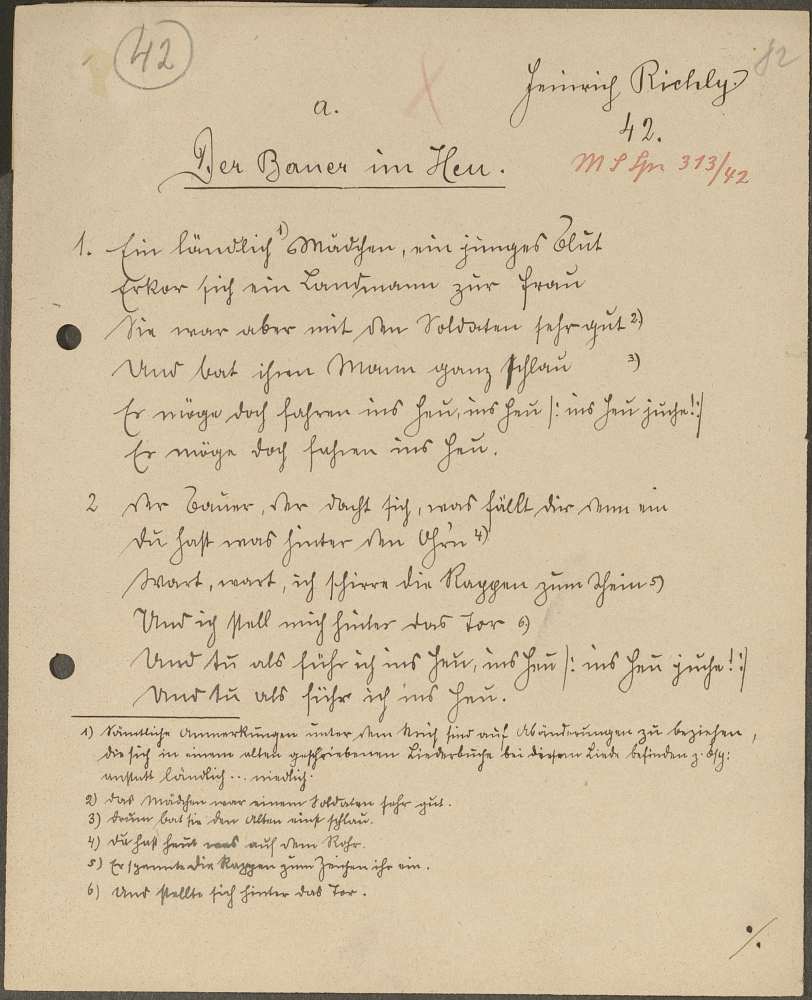 42
82
Heinrich Richly.
a.
42.
Der Bauer im Heu.
313/42
1. Ein ländlich 1) Mädchen, ein junges Blut
Erkor sich ein Landmann zur Frau
Sie war aber mit den Soldaten sehr gut 2)
Und bat ihren Mann ganz schlau 3)
Er möge doch fahren ins Heu, ins Heu |: ins Heu juche! :|
Er möge doch fahren ins Heu.
2 Der Bauer, der dacht sich, was fällt dir denn ein
Du hast was hinter den Ohr'n 4)
Wart, wart, ich schirre die Rappen zum Schein 5)
Und ich stell mich hinter das Tor 6)
Und tu als führ ich ins Heu, ins Heu |: ins Heu juche! :|
Und tu als führ ich ins Heu.
1) Sämtliche Anmerkungen unter dem Strich sind auf Abänderungen zu beziehen,
die sich in einem alten geschriebenen Liederbuche bei diesem Liede befinden z. Bsp:
anstatt ländlich ... niedlich.
2) Das Mädchen war einem Soldaten sehr gut.
3) Drum bat sie den Alten einst schlau.
4) Du hast heut was auf dem Rohr.
5) Er spannte die Rappen zum Zeichen ihr ein.
6) Und stellte sich hinter das Tor.
./.